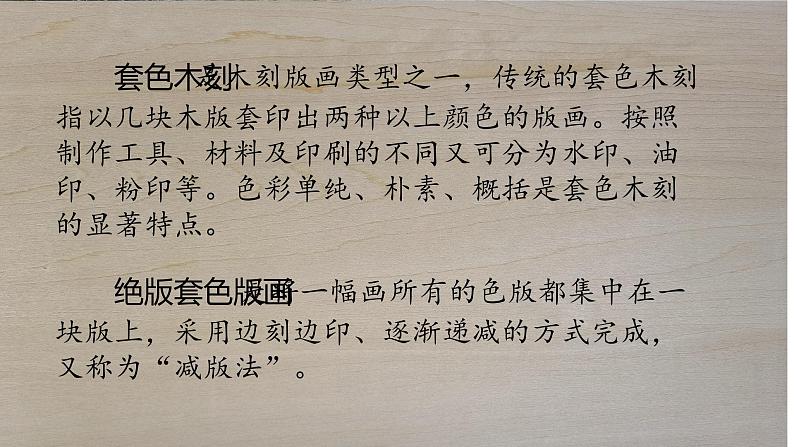 套色木刻是木刻版画类型之一，传统的套色木刻
指以几块木版套印出两种以上颜色的版画。按照
制作工具、材料及印刷的不同又可分为水印、油
印、粉印等。色彩单纯、朴素、概括是套色木刻
的显著特点。
绝版套色版画是将一幅画所有的色版都集中在一
块版上，采用边刻边印、逐渐递减的方式完成，
又称为“减版法”。